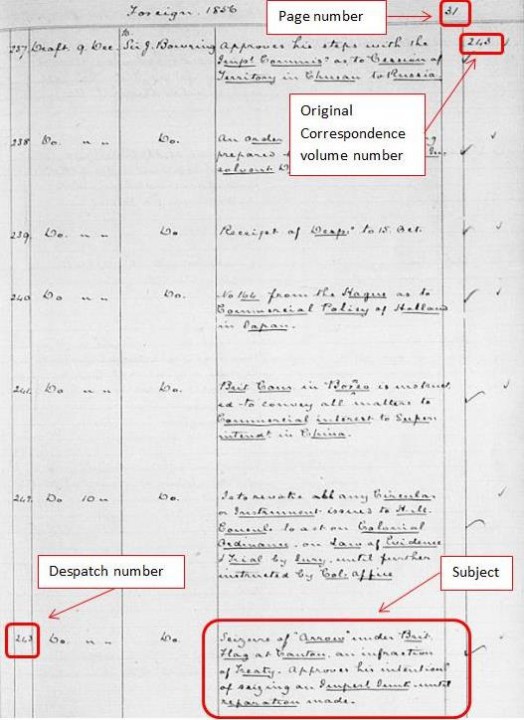 Foreign. 1856
Page number
31
237. Draft. 9. Dec. to Sir J. Bowring Approves his steps with the
Impl Commisr as to "Cession of
Territory in Chusan to Russia.
213
Original
Correspondence
volume number
238 Do. " " Do. An order
prepared
solvent
239. Do. " " Do. Receipt of Desps to 15. Oct.
240 Do " " Do. No 166 from the Hague as to
Commercial Policy of Holland
in Japan.
241. Do " " Do. Brit Cons in Borneo is instruct
ed to convey all matters of
Commercial interest to Super
intendt in China.
242. Do 10 " Do. Is to revoke all any Circular
or Instrument issued to H.M.
Consuls to act on Colonial
Ordinance. on Law of Evidence
& Trial by Jury. until further
instructed by Col: Office
Despatch number
Subject
243 Do. " " Do. Seizure of "Arrow" under Brit.
Flag at Canton. an infraction
of Treaty. Approves his intentions
of seizing an Imperl Junk. until
reparation made.